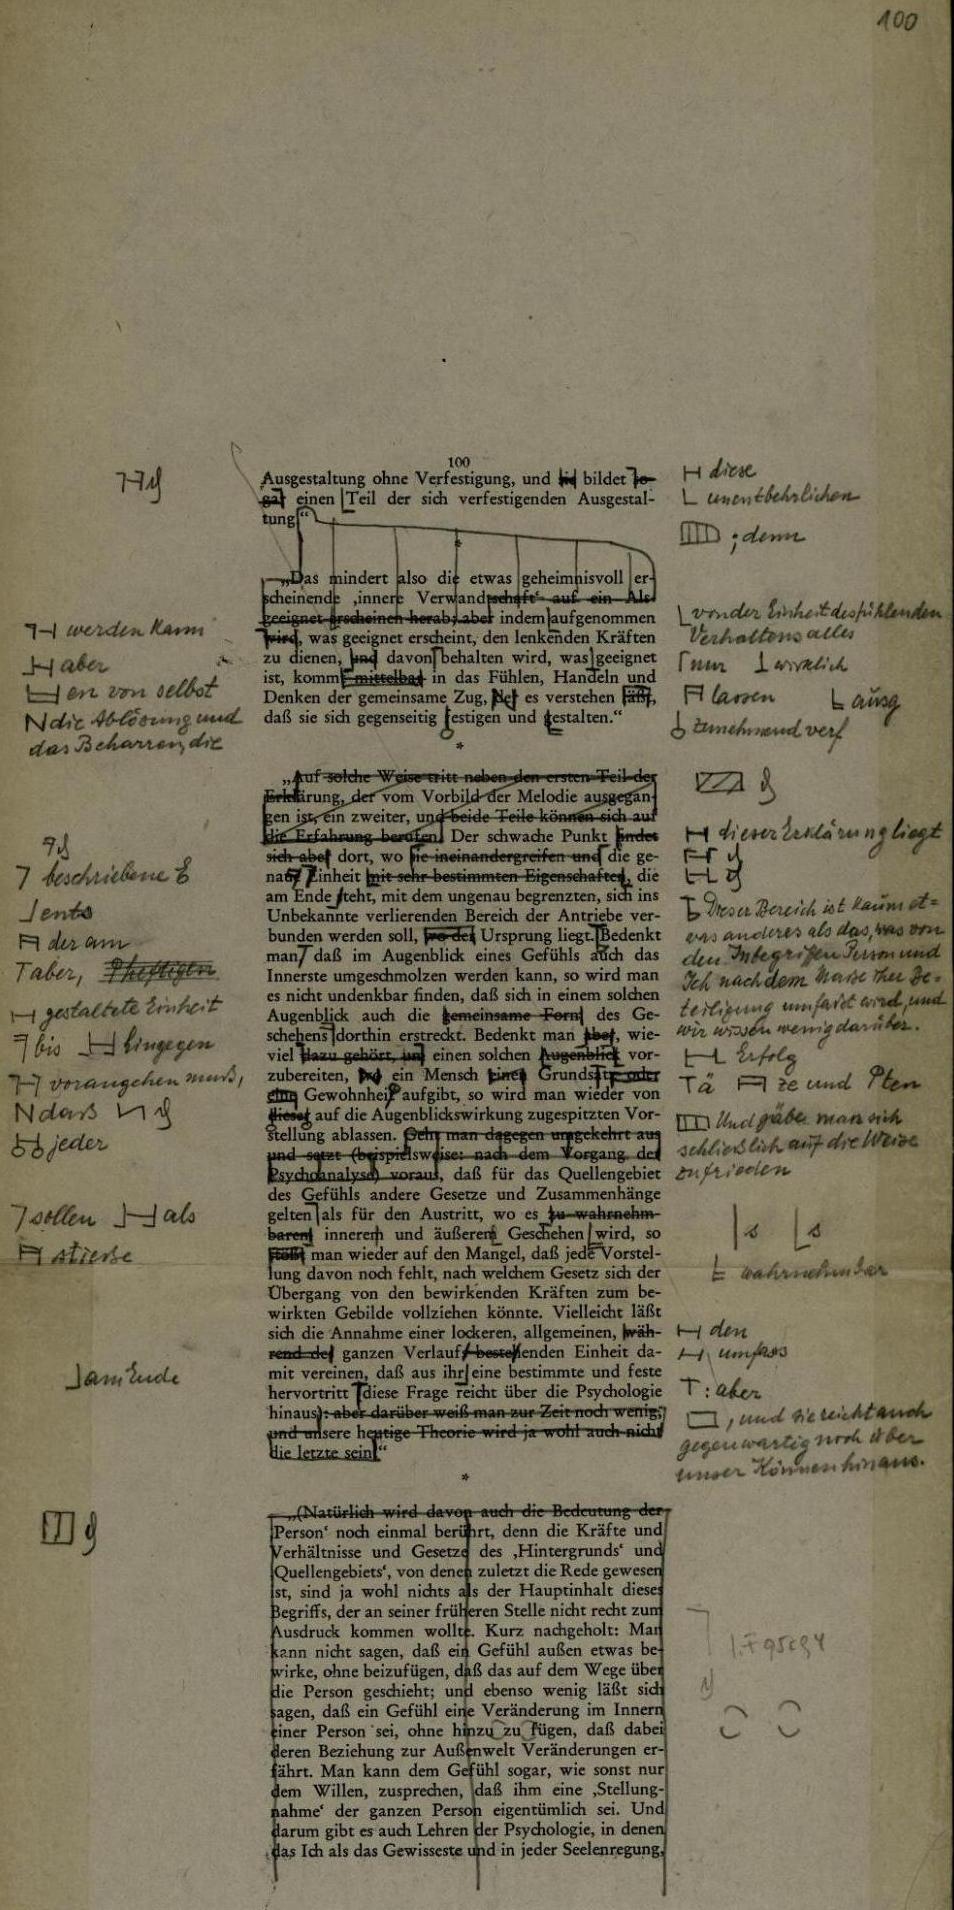 100
100
Ausgestaltung ohne Verfestigung, und bildet so-
gar einen Teil der sich verfestigenden Ausgestal-
tung“
*
„Das mindert also die etwas geheimnisvoll er-
scheinende ‚innere Verwandtschaft‘ auf ein Als
geeignet erscheinen herab; aber indem aufgenommen
wird, was geeignet erscheint, den lenkenden Kräften
zu dienen, und davon behalten wird, was geeignet
ist, kommt mittelbar in das Fühlen, Handeln und
Denken der gemeinsame Zug, der es verstehen läßt,
daß sie sich gegenseitig festigen und gestalten.“
*
„Auf solche Weise tritt neben den ersten Teil der
Erklärung, der vom Vorbild der Melodie ausgegan-
gen ist, ein zweiter, und beide Teile können sich auf
die Erfahrung berufen. Der schwache Punkt findet
sich aber dort, wo sie ineinandergreifen und die ge-
naue Einheit mit sehr bestimmten Eigenschaften, die
am Ende steht, mit dem ungenau begrenzten, sich ins
Unbekannte verlierenden Bereich der Antriebe ver-
bunden werden soll, wo der Ursprung liegt. Bedenkt
man, daß im Augenblick eines Gefühls auch das
Innerste umgeschmolzen werden kann, so wird man
es nicht undenkbar finden, daß sich in einem solchen
Augenblick auch die gemeinsame Form des Ge-
schehens dorthin erstreckt. Bedenkt man aber, wie-
viel dazu gehört, um einen solchen Augenblick vor-
zubereiten, ein Mensch einen Grundsatz oder
eine Gewohnheit aufgibt, so wird man wieder von
dieser auf die Augenblickswirkung zugespitzten Vor-
stellung ablassen. Geht man dagegen umgekehrt aus
und setzt (beispielsweise: nach dem Vorgang der
Psychoanalyse) voraus, daß für das Quellengebiet
des Gefühls andere Gesetze und Zusammenhänge
gelten als für den Austritt, wo es zu wahrnehm-
barem innerem und äußerem Geschehen wird, so
stößt man wieder auf den Mangel, daß jede Vorstel-
lung davon noch fehlt, nach welchem Gesetz sich der
Übergang von den bewirkenden Kräften zum be-
wirkten Gebilde vollziehen könnte. Vielleicht läßt
sich die Annahme einer lockeren, allgemeinen, wäh-
rend des ganzen Verlaufs bestehenden Einheit da-
mit vereinen, daß aus ihr eine bestimmte und feste
hervortritt diese Frage reicht über die Psychologie
hinaus): aber darüber weiß man zur Zeit noch wenig,
und unsere heutige Theorie wird ja wohl auch nicht
die letzte sein.“
*
„(Natürlich wird davon auch die Bedeutung der
‚Person‘ noch einmal berührt, denn die Kräfte und
Verhältnisse und Gesetze des ‚Hintergrunds‘ und
‚Quellengebiets‘, von denen zuletzt die Rede gewesen
ist, sind ja wohl nichts als der Hauptinhalt dieses
Begriffs, der an seiner früheren Stelle nicht recht zum
Ausdruck kommen wollte. Kurz nachgeholt: Man
kann nicht sagen, daß ein Gefühl außen etwas be-
wirke, ohne beizufügen, daß das auf dem Wege über
die Person geschieht; und ebenso wenig läßt sich
sagen, daß ein Gefühl eine Veränderung im Innern
einer Person sei, ohne hinzu zu fügen, daß dabei
deren Beziehung zur Außenwelt Veränderungen er-
fährt. Man kann dem Gefühl sogar, wie sonst nur
dem Willen, zusprechen, daß ihm eine ‚Stellung-
nahme‘ der ganzen Person eigentümlich sei. Und
darum gibt es auch Lehren der Psychologie, in denen
das Ich als das Gewisseste und in jeder Seelenregung,
werden kann
aber
en von selbst
die Ablösung und
das Beharren, die
beschriebene E
ents
der am
aber, heftigen
gestaltete Einheit
bis hingegen
vorangehen muß,
daß
jeder
sollen als
stieße
am Ende
diese
unentbehrlichen
; denn
von der Einheit des fühlenden
Verhaltens alles
nur wirklich
lassen ausg
zunehmend verf
dieser Erklärung liegt
Dieser Bereich ist kaum et=
was anderes als das, was von
den Inbegriffen Person und
Ich nach dem Maße ihrer Be-
teiligung umfaßt wird, und
wir wissen wenig darüber.
Erfolg
ä ze und ten
Und gäbe man sich
schließlich auf die Weise
zufrieden
s s
wahrnehmbar
den
umfass
: aber
, und sie reicht auch
gegenwärtig noch über
unser Können hinaus.